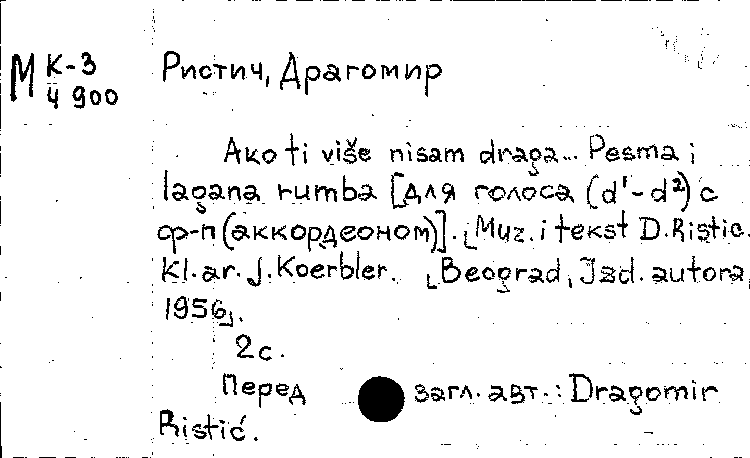 М К-3
4 900
Ристич, Драгомир
Ako ti više nisam draga... Pesma i
lagana rumba [для голоса (d¹-d²) с
ф-п (аккордеоном)]. [Muz. i tekst D. Ristic.
Kl. ar. J. Koerbler. [Beograd, Izd. autora,
1956].
2 с.
Перед загл. авт.: Dragomir
Ristić.